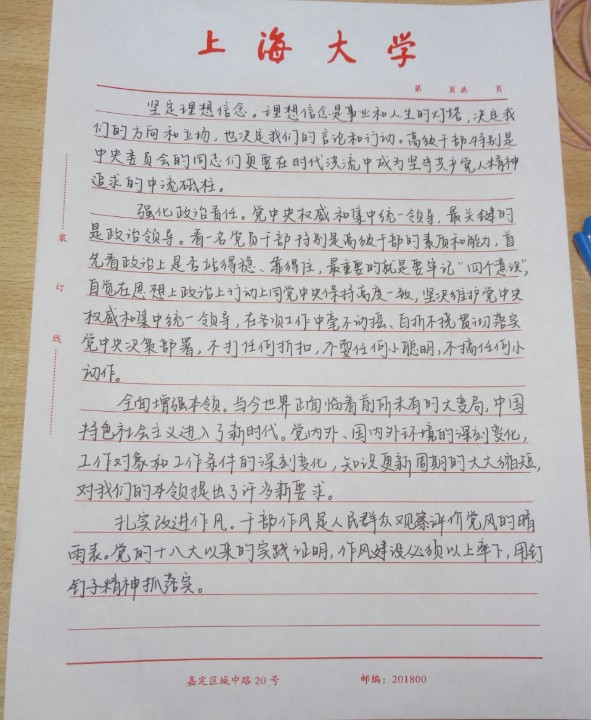 上海大学
第 页共 页
坚定理想信念。理想信念是事业和人生的灯塔,决定我
们的方向和立场,也决定我们的言论和行动。高级干部特别是
中央委员会的同志们更要在时代洪流中成为坚守共产党人精神
追求的中流砥柱。
强化政治责任。党中央权威和集中统一领导,最关键的
是政治领导。看一名党员干部特别是高级干部的素质和能力,首
先看政治上是否站得稳、靠得住,最重要的就是要牢记“四个意识”,
自觉在思想上政治上行动上同党中央保持高度一致,坚决维护党中央
权威和集中统一领导,在各项工作中毫不动摇、百折不挠贯彻落实
党中央决策部署,不打任何折扣,不耍任何小聪明,不搞任何小
动作。
全面增强本领。当今世界正面临着前所未有的大变局,中国
特色社会主义进入了新时代。党内外、国内外环境的深刻变化,
工作对象和工作条件的深刻变化,知识更新周期的大大缩短,
对我们的本领提出了许多新要求。
扎实改进作风。干部作风是人民群众观察评价党风的晴
雨表。党的十八大以来的实践证明,作风建设必须以上率下,用钉
钉子精神抓落实。
装
订
线
嘉定区城中路 20 号 邮编:201800